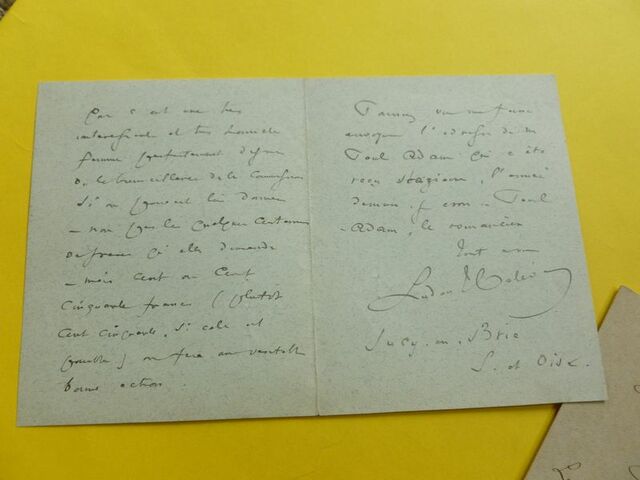 Car c'est une très
intéressante et très honnête
femme parfaitement digne
de la bienveillance de la Commission
Si on pouvait lui donner
- non pas les quelques centaines
de francs qu'elle demande
- mais cent ou cent
cinquante francs (plutôt
cent cinquante, si cela est
possible) on fera une véritable
bonne action.
me faire
envoyer l'adresse de M
Paul Adam qui a été
reçu l'année
Paul
Adam, le romancier
Tout à vous
Sucy-en-Brie
S. et Oise.